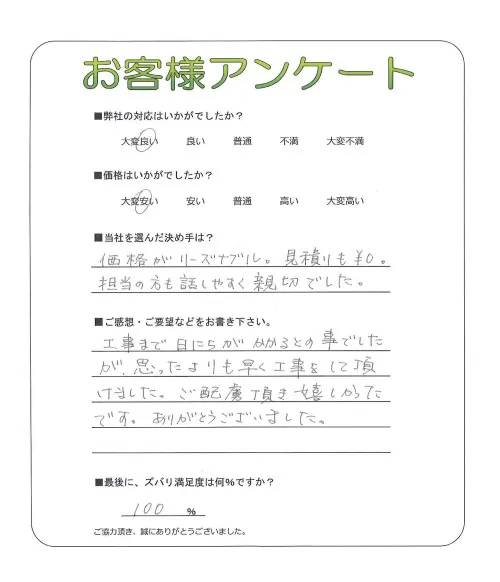 お客様アンケート
■弊社の対応はいかがでしたか？
大変良い 良い 普通 不満 大変不満
■価格はいかがでしたか？
大変安い 安い 普通 高い 大変高い
■当社を選んだ決め手は？
価格がリーズナブル。見積りも¥0。
担当の方も話しやすく親切でした。
■ご感想・ご要望などをお書き下さい。
工事まで日にちがかかるとの事でした
が、思ったよりも早く工事をして頂
けました。ご配慮頂き嬉しかった
です。ありがとうございました。
■最後に、ズバリ満足度は何%ですか？
100 %
ご協力頂き、誠にありがとうございました。